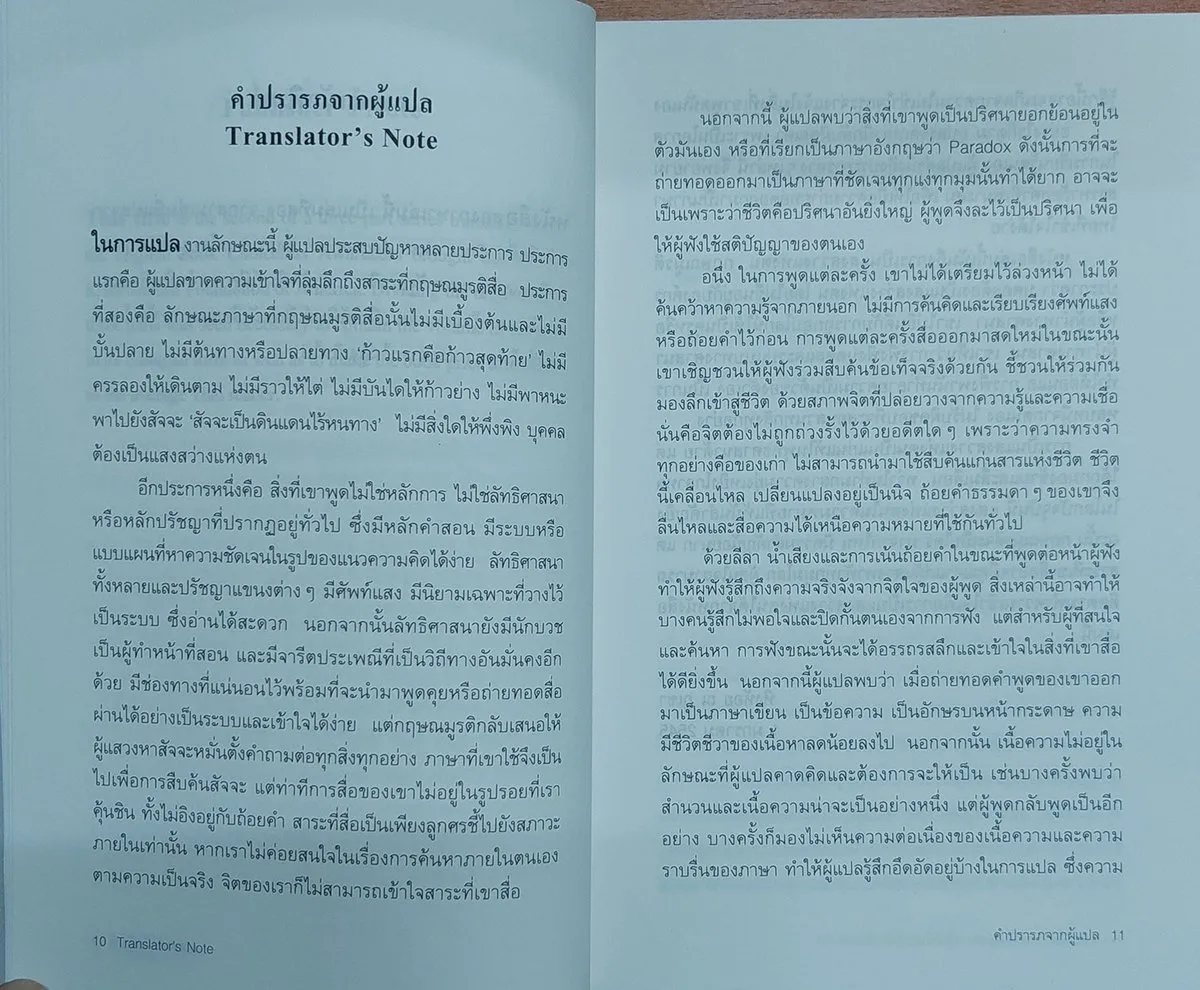 คำปรารภจากผู้แปล
Translator's Note
ในการแปล งานลักษณะนี้ ผู้แปลประสบปัญหาหลายประการ ประการ
แรกคือ ผู้แปลขาดความเข้าใจที่ลุ่มลึกถึงสาระที่กฤษณมูรติสื่อ ประการ
ที่สองคือ ลักษณะภาษาที่กฤษณมูรติสื่อนั้นไม่มีเบื้องต้นและไม่มี
บั้นปลาย ไม่มีต้นทางหรือปลายทาง 'ก้าวแรกคือก้าวสุดท้าย' ไม่มี
ครรลองให้เดินตาม ไม่มีราวให้ไต่ ไม่มีบันไดให้ก้าวย่าง ไม่มีพาหนะ
พาไปยังสัจจะ 'สัจจะเป็นดินแดนไร้หนทาง' ไม่มีสิ่งใดให้พึ่งพิง บุคคล
ต้องเป็นแสงสว่างแห่งตน
อีกประการหนึ่งคือ สิ่งที่เขาพูดไม่ใช่หลักการ ไม่ใช่ลัทธิศาสนา
หรือหลักปรัชญาที่ปรากฏอยู่ทั่วไป ซึ่งมีหลักคำสอน มีระบบหรือ
แบบแผนที่หาความชัดเจนในรูปของแนวความคิดได้ง่าย ลัทธิศาสนา
ทั้งหลายและปรัชญาแขนงต่าง ๆ มีศัพท์แสง มีนิยามเฉพาะที่วางไว้
เป็นระบบ ซึ่งอ่านได้สะดวก นอกจากนั้นลัทธิศาสนายังมีนักบวช
เป็นผู้ทำหน้าที่สอน และมีจารีตประเพณีที่เป็นวิถีทางอันมั่นคงอีก
ด้วย มีช่องทางที่แน่นอนไว้พร้อมที่จะนำมาพูดคุยหรือถ่ายทอดสื่อ
ผ่านได้อย่างเป็นระบบและเข้าใจได้ง่าย แต่กฤษณมูรติกลับเสนอให้
ผู้แสวงหาสัจจะหมั่นตั้งคำถามต่อทุกสิ่งทุกอย่าง ภาษาที่เขาใช้จึงเป็น
ไปเพื่อการสืบค้นสัจจะ แต่ท่าทีการสื่อของเขาไม่อยู่ในรูปรอยที่เรา
คุ้นชิน ทั้งไม่อิงอยู่กับถ้อยคำ สาระที่สื่อเป็นเพียงลูกศรชี้ไปยังสภาวะ
ภายในเท่านั้น หากเราไม่ค่อยสนใจในเรื่องการค้นหาภายในตนเอง
ตามความเป็นจริง จิตของเราก็ไม่สามารถเข้าใจสาระที่เขาสื่อ
10 Translator's Note
นอกจากนี้ ผู้แปลพบว่าสิ่งที่เขาพูดเป็นปริศนายอกย้อนอยู่ใน
ตัวมันเอง หรือที่เรียกเป็นภาษาอังกฤษว่า Paradox ดังนั้นการที่จะ
ถ่ายทอดออกมาเป็นภาษาที่ชัดเจนทุกแง่ทุกมุมนั้นทำได้ยาก อาจจะ
เป็นเพราะว่าชีวิตคือปริศนาอันยิ่งใหญ่ ผู้พูดจึงละไว้เป็นปริศนา เพื่อ
ให้ผู้ฟังใช้สติปัญญาของตนเอง
อนึ่ง ในการพูดแต่ละครั้ง เขาไม่ได้เตรียมไว้ล่วงหน้า ไม่ได้
ค้นคว้าหาความรู้จากภายนอก ไม่มีการค้นคิดและเรียบเรียงศัพท์แสง
หรือถ้อยคำไว้ก่อน การพูดแต่ละครั้งสื่อออกมาสดใหม่ในขณะนั้น
เขาเชิญชวนให้ผู้ฟังร่วมสืบค้นข้อเท็จจริงด้วยกัน ชี้ชวนให้ร่วมกัน
มองลึกเข้าสู่ชีวิต ด้วยสภาพจิตที่ปล่อยวางจากความรู้และความเชื่อ
นั่นคือจิตต้องไม่ถูกถ่วงรั้งไว้ด้วยอดีตใด ๆ เพราะว่าความทรงจำ
ทุกอย่างคือของเก่า ไม่สามารถนำมาใช้สืบค้นแก่นสารแห่งชีวิต ชีวิต
นี้เคลื่อนไหล เปลี่ยนแปลงอยู่เป็นนิจ ถ้อยคำธรรมดา ๆ ของเขาจึง
ลื่นไหลและสื่อความได้เหนือความหมายที่ใช้กันทั่วไป
ด้วยลีลา น้ำเสียงและการเน้นถ้อยคำในขณะที่พูดต่อหน้าผู้ฟัง
ทำให้ผู้ฟังรู้สึกถึงความจริงจังจากจิตใจของผู้พูด สิ่งเหล่านี้อาจทำให้
บางคนรู้สึกไม่พอใจและปิดกั้นตนเองจากการฟัง แต่สำหรับผู้ที่สนใจ
และค้นหา การฟังขณะนั้นจะได้อรรถรสลึกและเข้าใจในสิ่งที่เขาสื่อ
ได้ดียิ่งขึ้น นอกจากนี้ผู้แปลพบว่า เมื่อถ่ายทอดคำพูดของเขาออก
มาเป็นภาษาเขียน เป็นข้อความ เป็นอักษรบนหน้ากระดาษ ความ
มีชีวิตชีวาของเนื้อหาลดน้อยลงไป นอกจากนั้น เนื้อความไม่อยู่ใน
ลักษณะที่ผู้แปลคาดคิดและต้องการจะให้เป็น เช่นบางครั้งพบว่า
สำนวนและเนื้อความน่าจะเป็นอย่างหนึ่ง แต่ผู้พูดกลับพูดเป็นอีก
อย่าง บางครั้งก็มองไม่เห็นความต่อเนื่องของเนื้อความและความ
ราบรื่นของภาษา ทำให้ผู้แปลรู้สึกอึดอัดอยู่บ้างในการแปล ซึ่งความ
คำปรารภจากผู้แปล 11